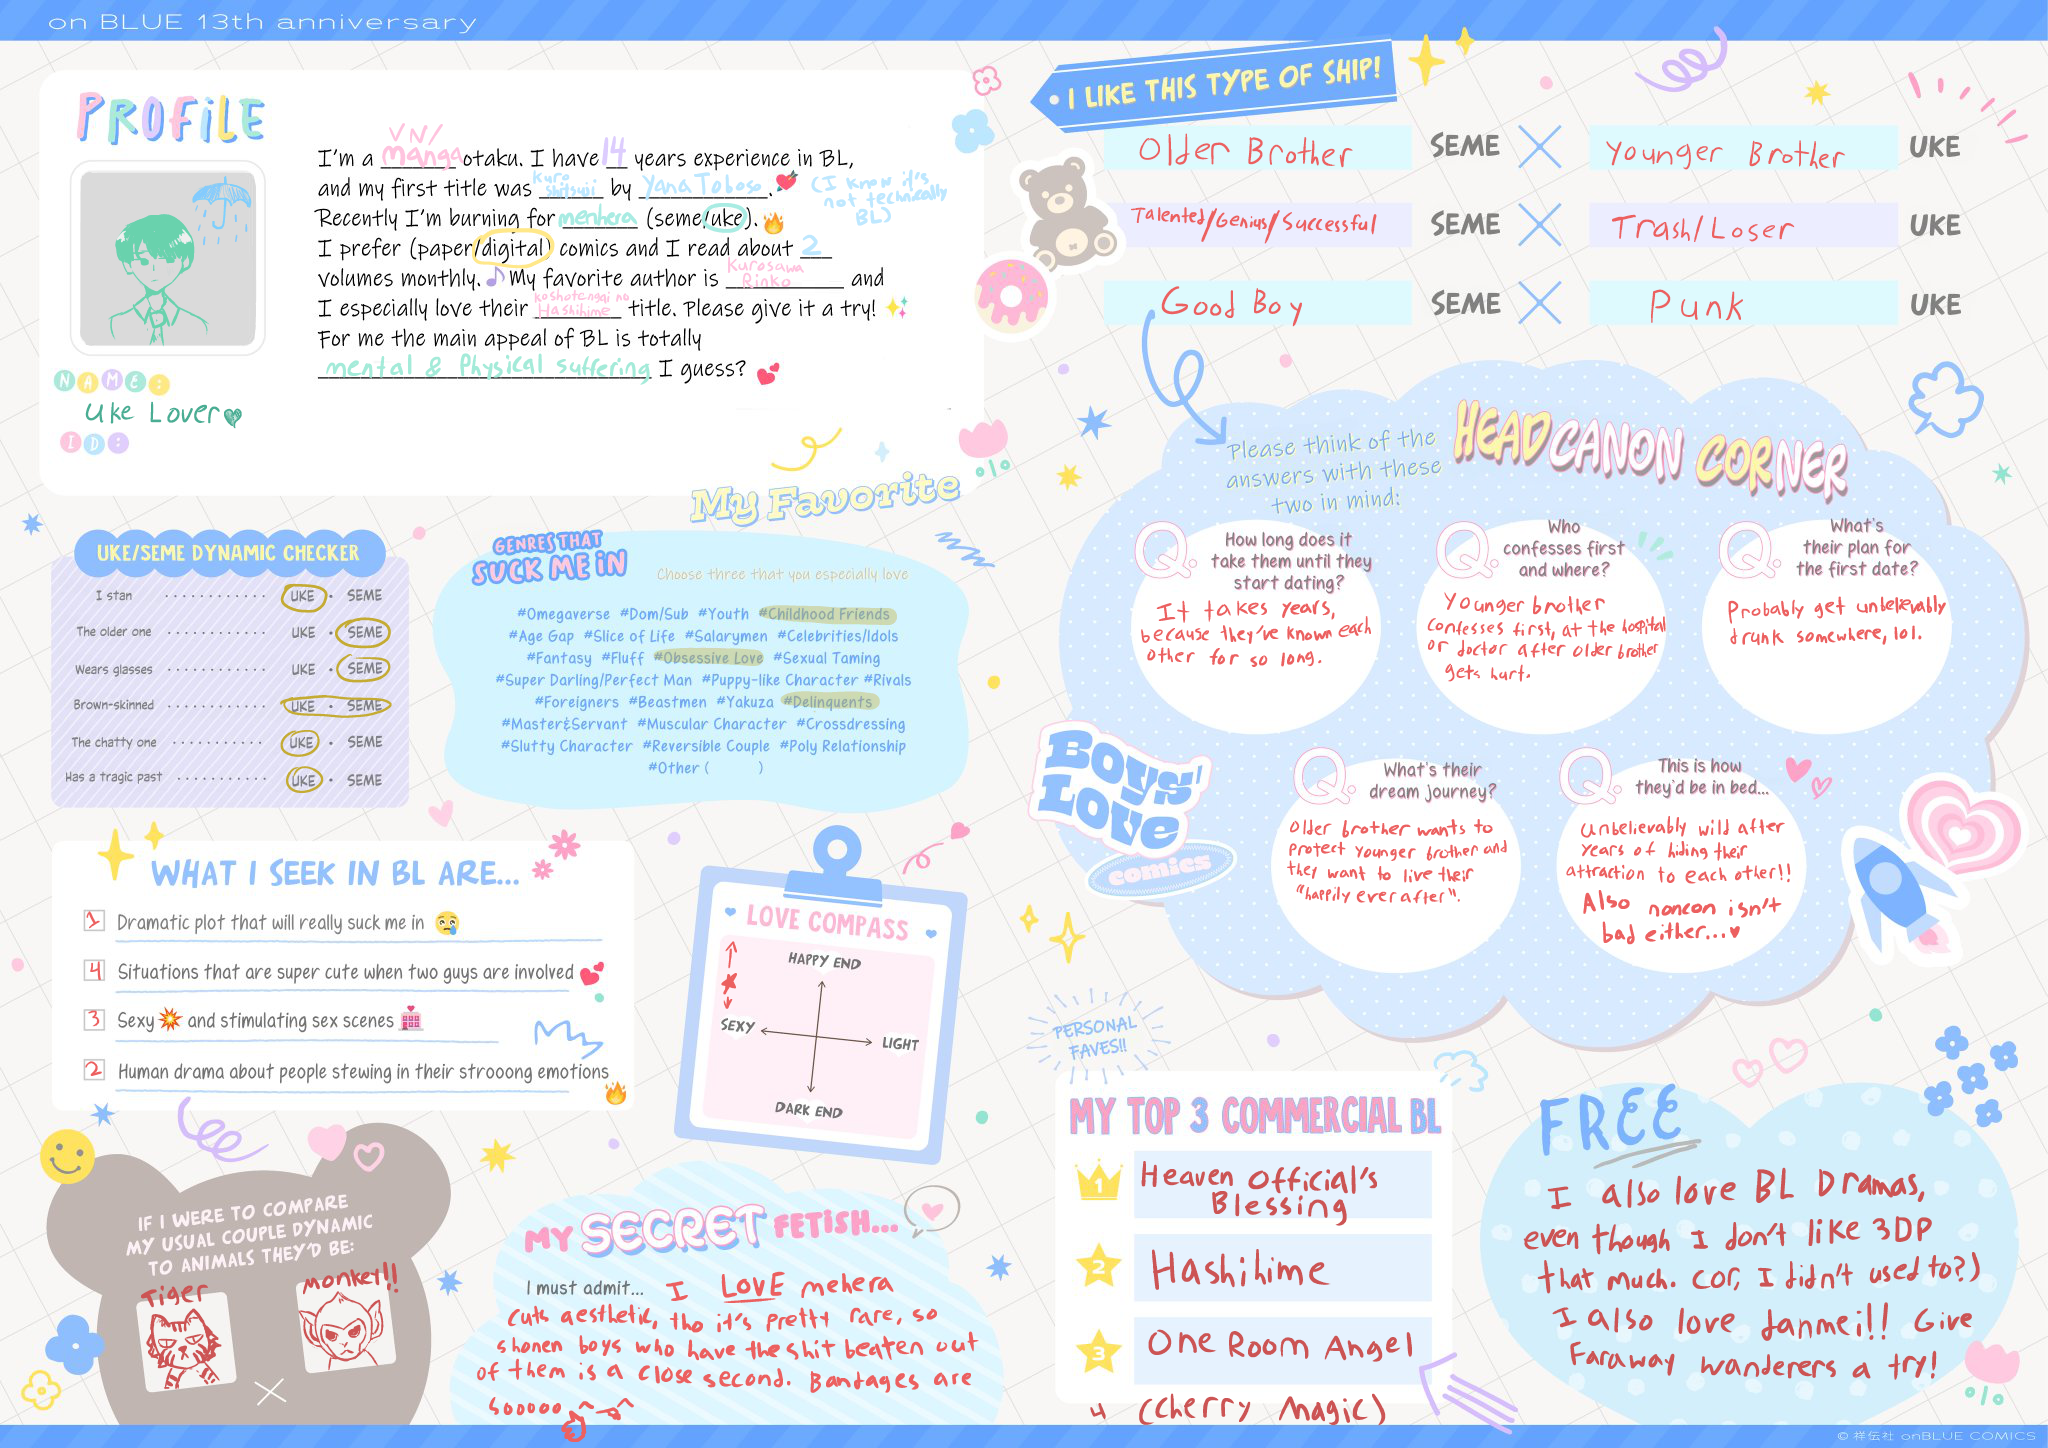 on BLUE 13th anniversary
PROFILE
I'm a VN/manga otaku. I have 14 years experience in BL,
and my first title was Kuroshitsuji by Yana Toboso. (I know it's not technically BL)
Recently I'm burning for menhera (seme/uke).
I prefer (paper/digital) comics and I read about 2
volumes monthly. My favorite author is Kurosawa Rinko and
I especially love their Koshotengai no Hashihime title. Please give it a try!
For me the main appeal of BL is totally
mental & Physical suffering I guess?
NAME:
Uke Lover
ID:
My Favorite
UKE/SEME DYNAMIC CHECKER
I stan ............ UKE · SEME
The older one ............ UKE · SEME
Wears glasses ............ UKE · SEME
Brown-skinned ............ UKE · SEME
The chatty one ............ UKE · SEME
Has a tragic past ............ UKE · SEME
GENRES THAT
SUCK ME IN
Choose three that you especially love
#Omegaverse #Dom/Sub #Youth #Childhood Friends
#Age Gap #Slice of Life #Salarymen #Celebrities/Idols
#Fantasy #Fluff #Obsessive Love #Sexual Taming
#Super Darling/Perfect Man #Puppy-like Character #Rivals
#Foreigners #Beastmen #Yakuza #Delinquents
#Master&Servant #Muscular Character #Crossdressing
#Slutty Character #Reversible Couple #Poly Relationship
#Other ( )
WHAT I SEEK IN BL ARE...
1 Dramatic plot that will really suck me in
4 Situations that are super cute when two guys are involved
3 Sexy and stimulating sex scenes
2 Human drama about people stewing in their strooong emotions
LOVE COMPASS
HAPPY END
SEXY
LIGHT
DARK END
IF I WERE TO COMPARE
MY USUAL COUPLE DYNAMIC
TO ANIMALS THEY'D BE:
Tiger
monkey!!
MY SECRET FETISH...
I must admit... I LOVE mehera
cuts aesthetic, tho it's pretty rare, so
shonen boys who have the shit beaten out
of them is a close second. Bandages are
sooooo
I LIKE THIS TYPE OF SHIP!
Older Brother SEME X Younger Brother UKE
Talented/Genius/Successful SEME X Trash/Loser UKE
Good Boy SEME X Punk UKE
Please think of the
answers with these
two in mind:
HEADCANON CORNER
Q. How long does it
take them until they
start dating?
It takes years,
because they've known each
other for so long.
Q. Who
confesses first
and where?
Younger brother
confesses first, at the hospital
or doctor after older brother
gets hurt.
Q. What's
their plan for
the first date?
Probably get unbelievably
drunk somewhere, lol.
Q. What's their
dream journey?
Older brother wants to
protect younger brother and
they want to live their
"happily ever after".
Q. This is how
they'd be in bed...
Unbelievably wild after
years of hiding their
attraction to each other!!
Also noncon isn't
bad either...
BOYS'
LOVE
comics
PERSONAL
FAVES!!
MY TOP 3 COMMERCIAL BL
1 Heaven Official's
Blessing
2 Hashihime
3 One Room Angel
4 (Cherry Magic)
FREE
I also love BL Dramas,
even though I don't like 3DP
that much. (or, I didn't used to?)
I also love danmei!! Give
Faraway wanderers a try!
© 祥伝社 onBLUE COMICS